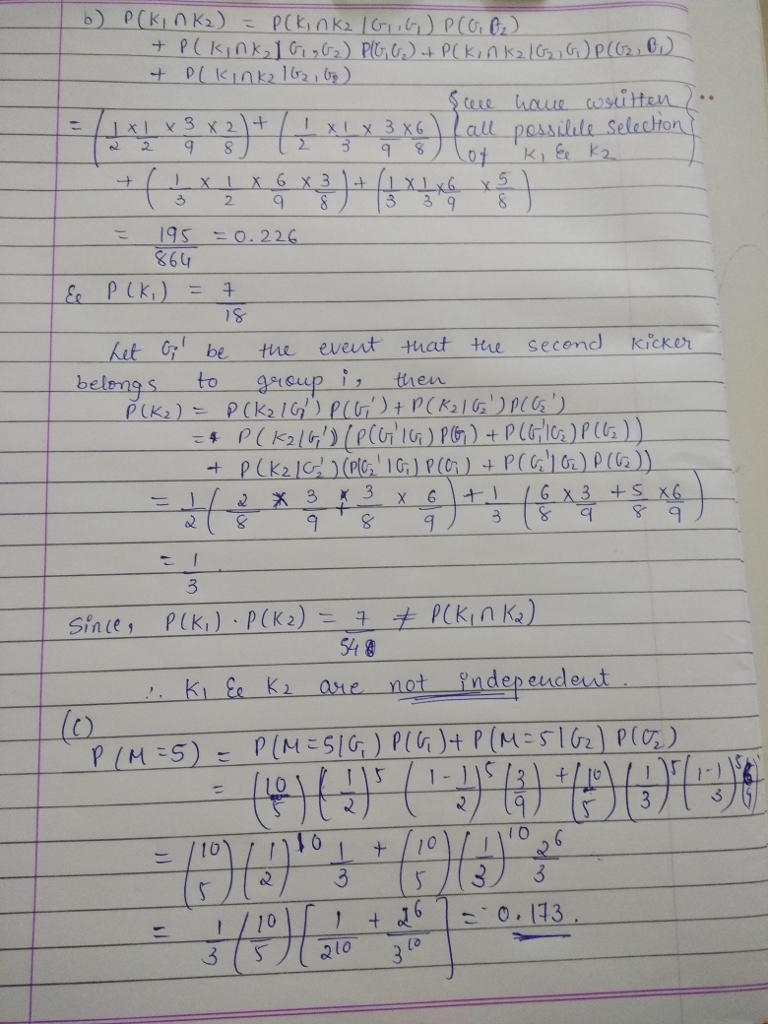 b) P(K₁∩K₂) = P(K₁∩K₂ | G₁,G₁) P(G₁G₂)
+ P(K₁∩K₂ | G₁,G₂) P(G₁G₂) + P(K₁∩K₂ | G₂,G₁) P(G₂,G₁)
+ P(K₁∩K₂ | G₂,G₂)
= (1/2 × 1/2 × 3/9 × 2/8) + (1/2 × 1/3 × 3/9 × 6/8) {we have written all possible selection of K₁ & K₂}
+ (1/3 × 1/2 × 6/9 × 3/8) + (1/3 × 1/3 × 6/9 × 5/8)
= 195/864 = 0.226
& P(K₁) = 7/18
Let Gi' be the event that the second kicker
belongs to group i, then
P(K₂) = P(K₂|G₁')P(G₁') + P(K₂|G₂')P(G₂')
= P(K₂|G₁')(P(G₁'|G₁)P(G₁) + P(G₁'|G₂)P(G₂))
+ P(K₂|G₂')(P(G₂'|G₁)P(G₁) + P(G₂'|G₂)P(G₂))
= 1/2 (2/8 × 3/9 + 3/8 × 6/9) + 1/3 (6/8 × 3/9 + 5/8 × 6/9)
= 1/3.
Since, P(K₁)·P(K₂) = 7/54 ≠ P(K₁∩K₂)
∴ K₁ & K₂ are not independent.
(C)
P(M=5) = P(M=5|G₁)P(G₁) + P(M=5|G₂)P(G₂)
= (10 5)(1/2)⁵(1-1/2)⁵(3/9) + (10 5)(1/3)⁵(1-1/3)⁵
= (10 5)(1/2)¹⁰ 1/3 + (10 5)(1/3)¹⁰ 2⁶/3
= 1/3 (10 5)[1/2¹⁰ + 2⁶/3¹⁰] = 0.173.